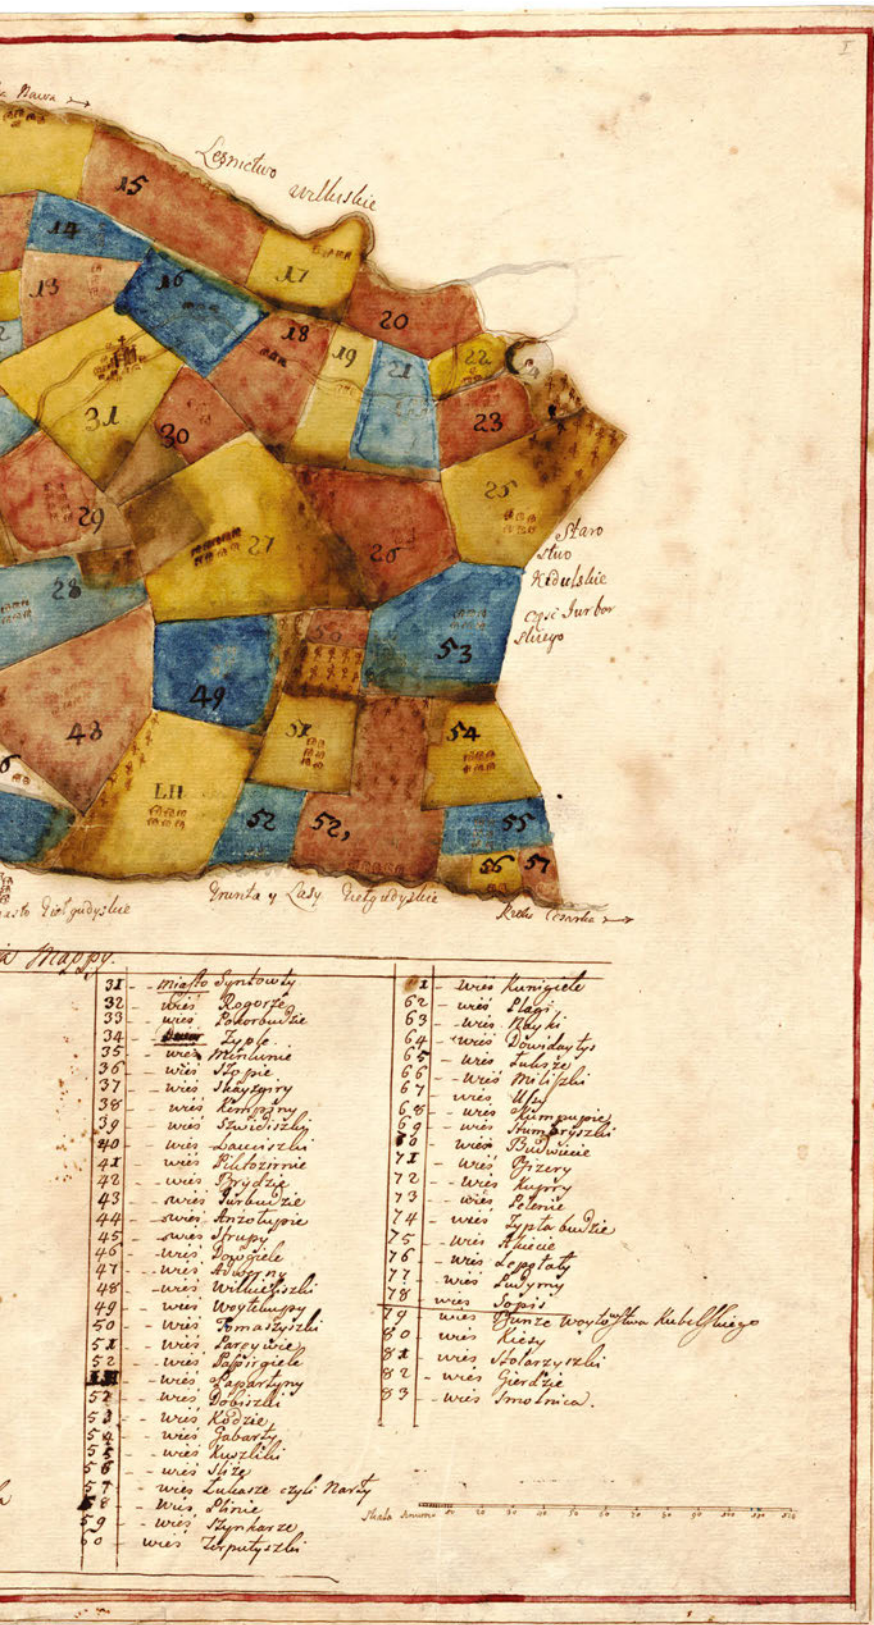 I
Nawa
Leśnictwo
wilkiskie
15
14
13
16
17
20
18
19
21
22
24
31
30
23
25
29
27
26
28
Staro
stwo
Kidulskie
częśc Jurbor
skiego
50
53
49
43
51
54
LII
52
52,
55
56
57
Giełgudyskie
Grunta y Lasy Giełgudyskie
Mappy.
31 - - miasto Syntowty
32 wieś Rogorże
33 - wieś Pokorbudzie
34 - Dwor Zyple.
35 - wieś Minlunie
36 - wieś Szopie
37 - - wieś Skayzgiry
38 - - wieś Kempiny
39 - wieś Szwidiszki
40 - wieś Lauciszki
41 - wieś Piktozirnie
42 - - wieś Brydzie
43 - wieś Jurbudzie
44 - wieś Anzotupie
45 - wieś Strupy
46 - wieś Dowgiele
47 - wieś Adworny
48 - wieś Wilkieliszki
49 - wieś Woytkuppy
50 - - wieś Tomaszyszki
51 - wieś Pareywie
52 - wieś Papirgiele
LII - wieś Papartyny
52 - wieś Dobiszki
53 - - wieś Kodzie
54 - wieś Gabarty
55 - wieś Kuszliki
56 - - wieś Sliże
57 - wieś Lukasze czyli Narty
58 - wieś Plinie
59 - wieś Szynkarze
60 - wieś Zerputyszki
61 - wieś Kunigiele
62 - wieś Plagi
63 - wieś Rayki
64 - wieś Dowidaytys
65 - wieś Luksze
66 - - wieś Miliszki
67 wieś Usy
68 - - wieś Kumpupie
69 - wieś Stumbryszki
70 - wieś Budwiecie
71 - wieś Bizery
72 - - wieś Kupry
73 - wieś Pelenie
74 - wieś Zyplabudzie
75 - wieś Akiecie
76 - wieś Lepztaty
77 - wieś Ludymy
78 - wieś Sopis
79 - wieś Szunze Woytowstwa Kubelskiego
80 - wieś Kiesy
81 - wieś Stolarzyszki
82 - wieś Gierdzie
83 - wieś Smolnica.
Skala Sznurow 10 20 30 40 50 60 70 80 90 100 110 120